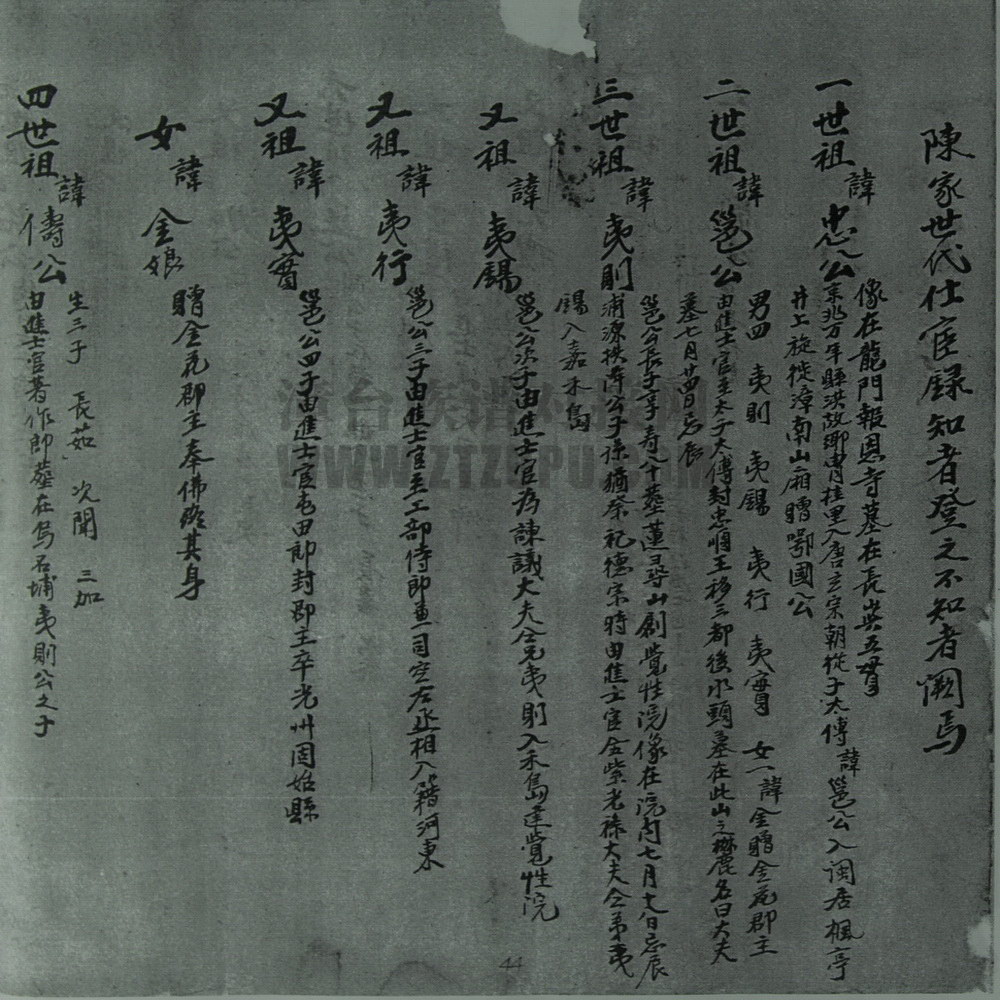 陳家世代仕宦錄知者登之不知者闕焉
一世祖 諱 忠公
像在龍門報恩寺墓在長
京兆万年縣洪故鄉胄桂里入唐玄宗朝從子太傅 諱邕公入閩居楓亭
井上旋徙漳南山廂贈鄂國公
男四 夷則 夷錫 夷行 夷實 女一諱金贈金花郡主
二世祖 諱 邕公
由進士官至太子太傅封忠順王移三都後水頭墓在此山之麓名曰大夫
墓七月廿四日忌辰
三世祖 諱 夷則
邕公長子享壽八十墓蓮尋山創覺性院像在院內七月十八日忌辰
浦源陂庵公子孫猶祭祀德宗時由進士官金紫光祿大夫仝弟夷
錫入嘉禾島
又祖 諱 夷錫
邕公次子由進士官為諫議大夫仝兄夷則入禾島建覺性院
又祖 諱 夷行
邕公三子由進士官至工部侍郎兼司空左丞相入籍河東
又祖 諱 夷實
邕公四子由進士官屯田郎封郡王卒光州固始縣
女 諱 金娘
贈金花郡主奉佛終其身
四世祖 諱 儔公
生三子 長茹 次聞 三加
由進士官著作郎葬在烏石埔夷則公之子
44
漳台族谱对接网
WWW.ZTZUPU.COM